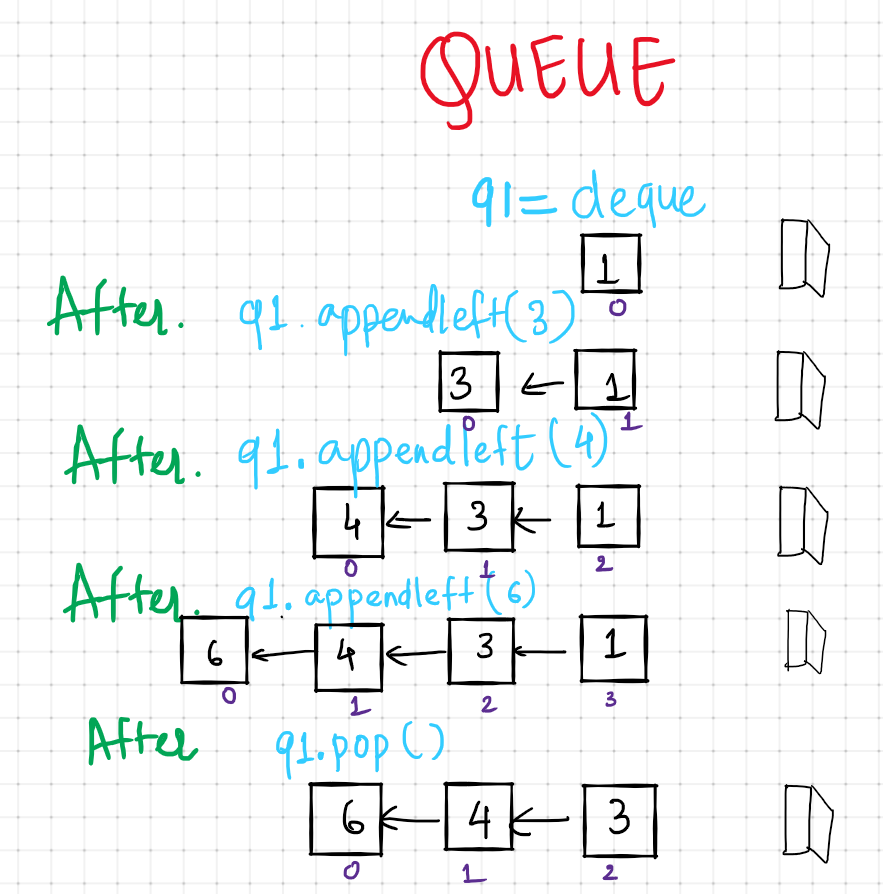 QUEUE
q1= deque
1
0
After. q1.appendleft(3)
3 1
0 1
After. q1.appendleft(4)
4 3 1
0 1 2
After. q1.appendleft(6)
6 4 3 1
0 1 2 3
After q1.pop()
6 4 3
0 1 2